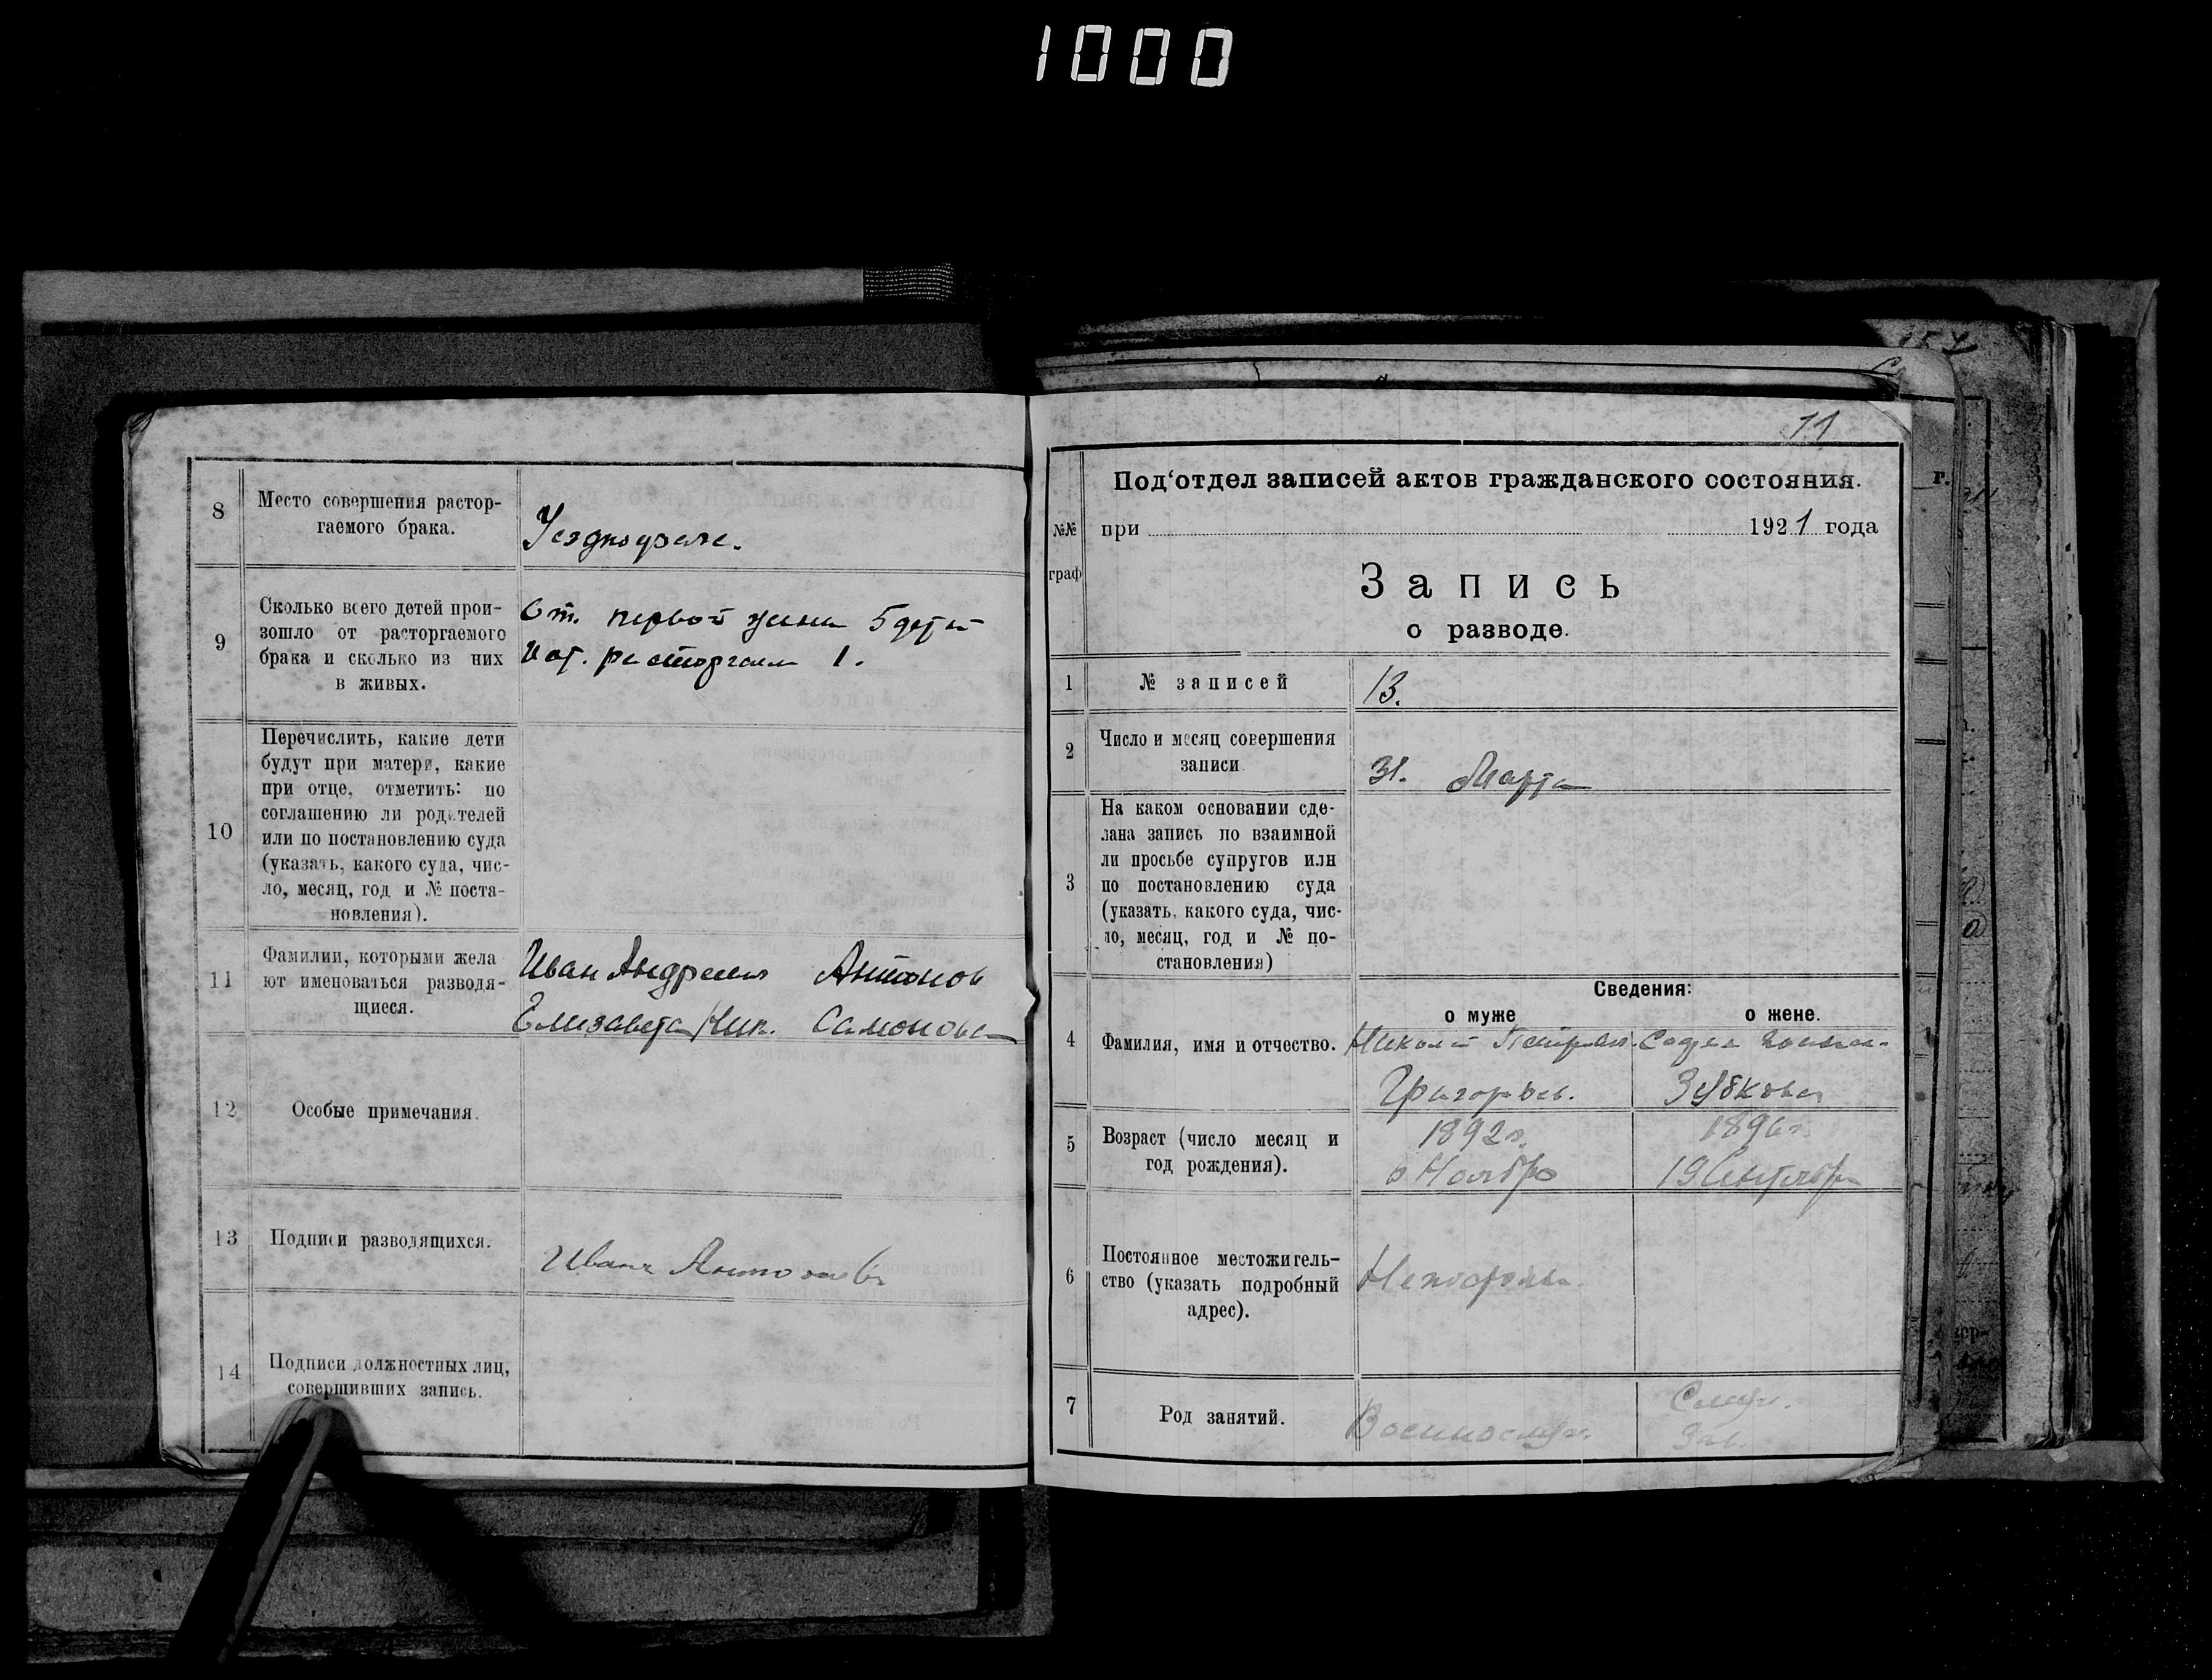 1000
8
Место совершения растор-
гаемого брака.
9
Сколько всего детей прои-
зошло от расторгаемого
брака и сколько из них
в живых.
От. первой жены 5 детей
И от. расторгаем 1.
10
Перечислить, какие дети
будут при матери, какие
при отце, отметить: по
соглашению ли родителей
или по постановлению суда
(указать, какого суда, чис-
ло, месяц, год и № поста-
новления).
11
Фамилии, которыми жела
ют именоваться разводя-
щиеся.
Иван Андреевич Антонов
Елизавета Ник. Самонова
12
Особые примечания.
13
Подписи разводящихся.
Иванъ Антоновъ
14
Подписи должностных лиц,
совершивших запись.
11
№№
граф
Под‘отдел записей актов гражданского состояния.
при 1921 года
Запись
о разводе.
1
№ записей
13.
2
Число и месяц совершения
записи
31. Марта
3
На каком основании сде-
лана запись по взаимной
ли просьбе супругов или
по постановлению суда
(указать, какого суда, чис-
ло, месяц, год и № по-
становления)
Сведения:
о муже
о жене.
4
Фамилия, имя и отчество.
Николай Петров.
Григорьев.
Зубкова
5
Возраст (число месяц и
год рождения).
1892г.
Ноября
1896г.
19 Сентября
6
Постоянное местожитель-
ство (указать подробный
адрес).
7
Род занятий.
Военнослуж.
Служ.
г.